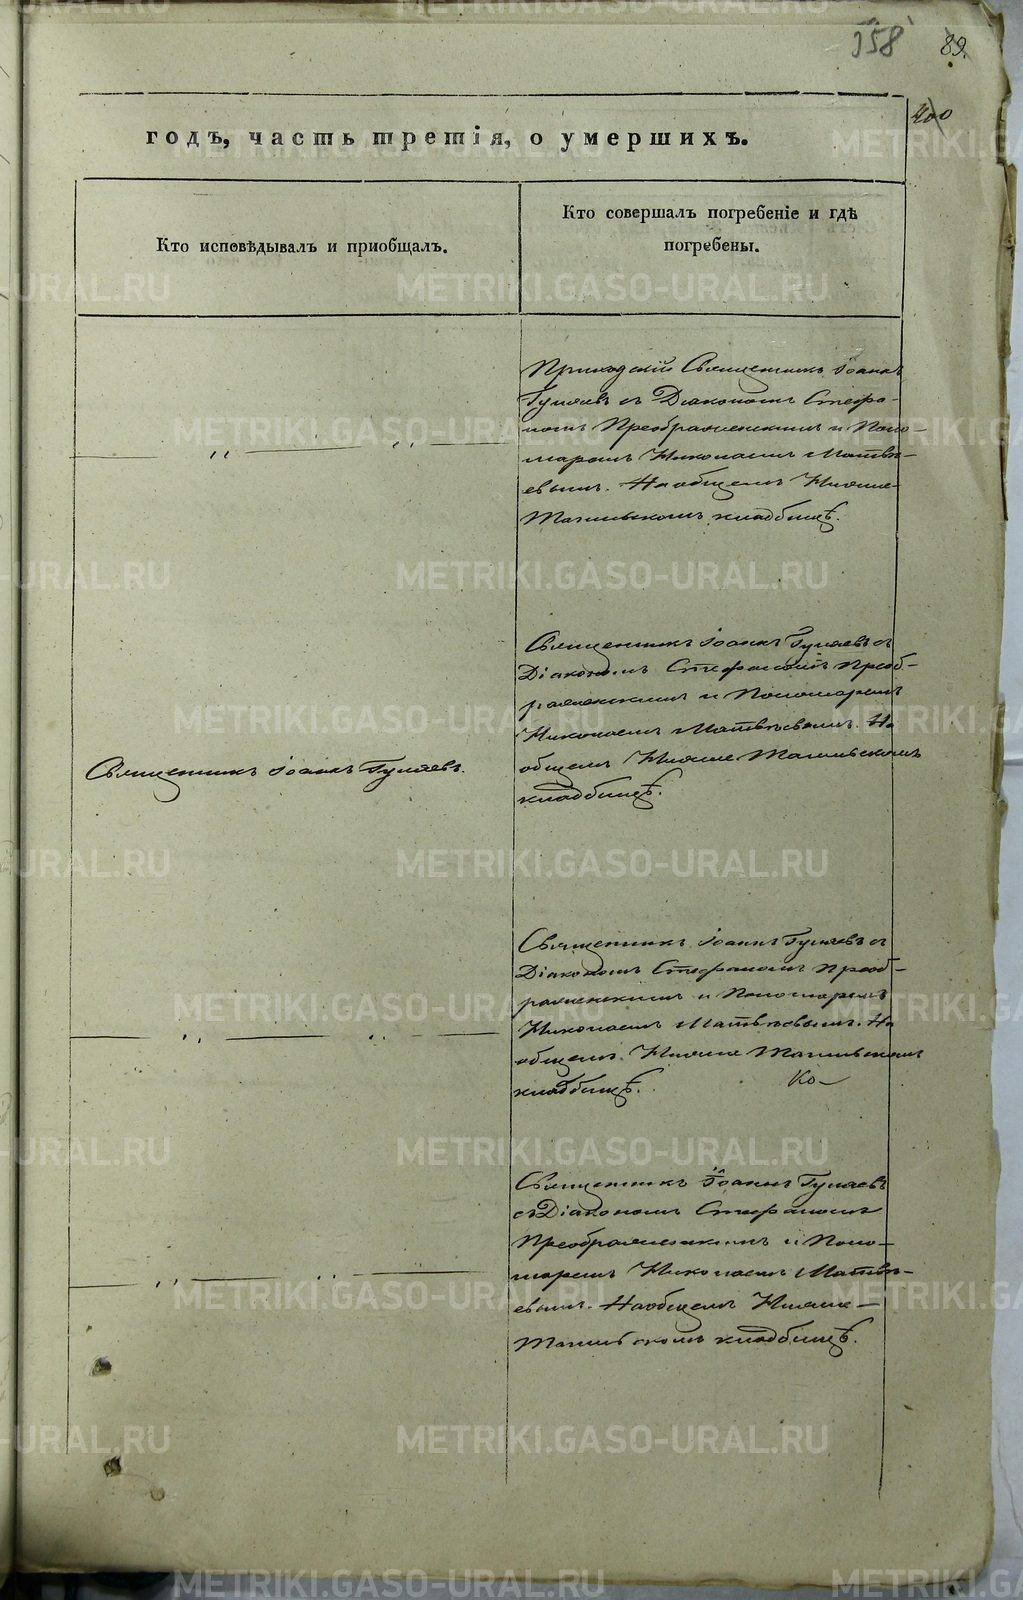 358 89.
400
годъ, часть третія, о умершихъ.
Кто исповѣдывалъ и приобщалъ.
Кто совершалъ погребеніе и гдѣ
погребены.
Приходскій Священникъ Іоаннъ
Гуляевъ съ Діакономъ Стефа-
номъ Преображенскимъ и Поно-
маремъ Николаемъ Матвѣ-
евымъ. На общемъ Нижне-
Тагильскомъ кладбищѣ.
Священникъ Іоаннъ Гуляевъ съ
Діакономъ Стефаномъ Преоб-
раженскимъ и Пономаремъ
Николаемъ Матвѣевымъ. На
общемъ Нижне Тагильскомъ
кладбищѣ.
Священникъ Іоаннъ Гуляевъ.
Священникъ Іоаннъ Гуляевъ съ
Діакономъ Стефаномъ Преоб-
раженскимъ и Пономаремъ
Николаемъ Матвѣевымъ. На
общемъ Нижне Тагильскомъ
кладбищѣ. Ко-
Священникъ Іоаннъ Гуляевъ
съ Діакономъ Стефаномъ
Преображенскимъ и Поно-
маремъ Николаемъ Матвѣ-
евымъ. На общемъ Нижне-
Тагильскомъ кладбищѣ.
METRIKI.GASO-URAL.RU